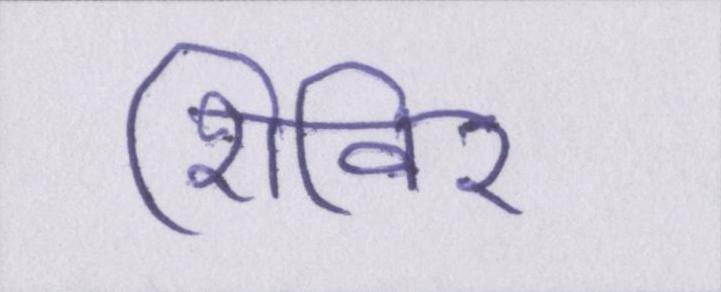 शिविर